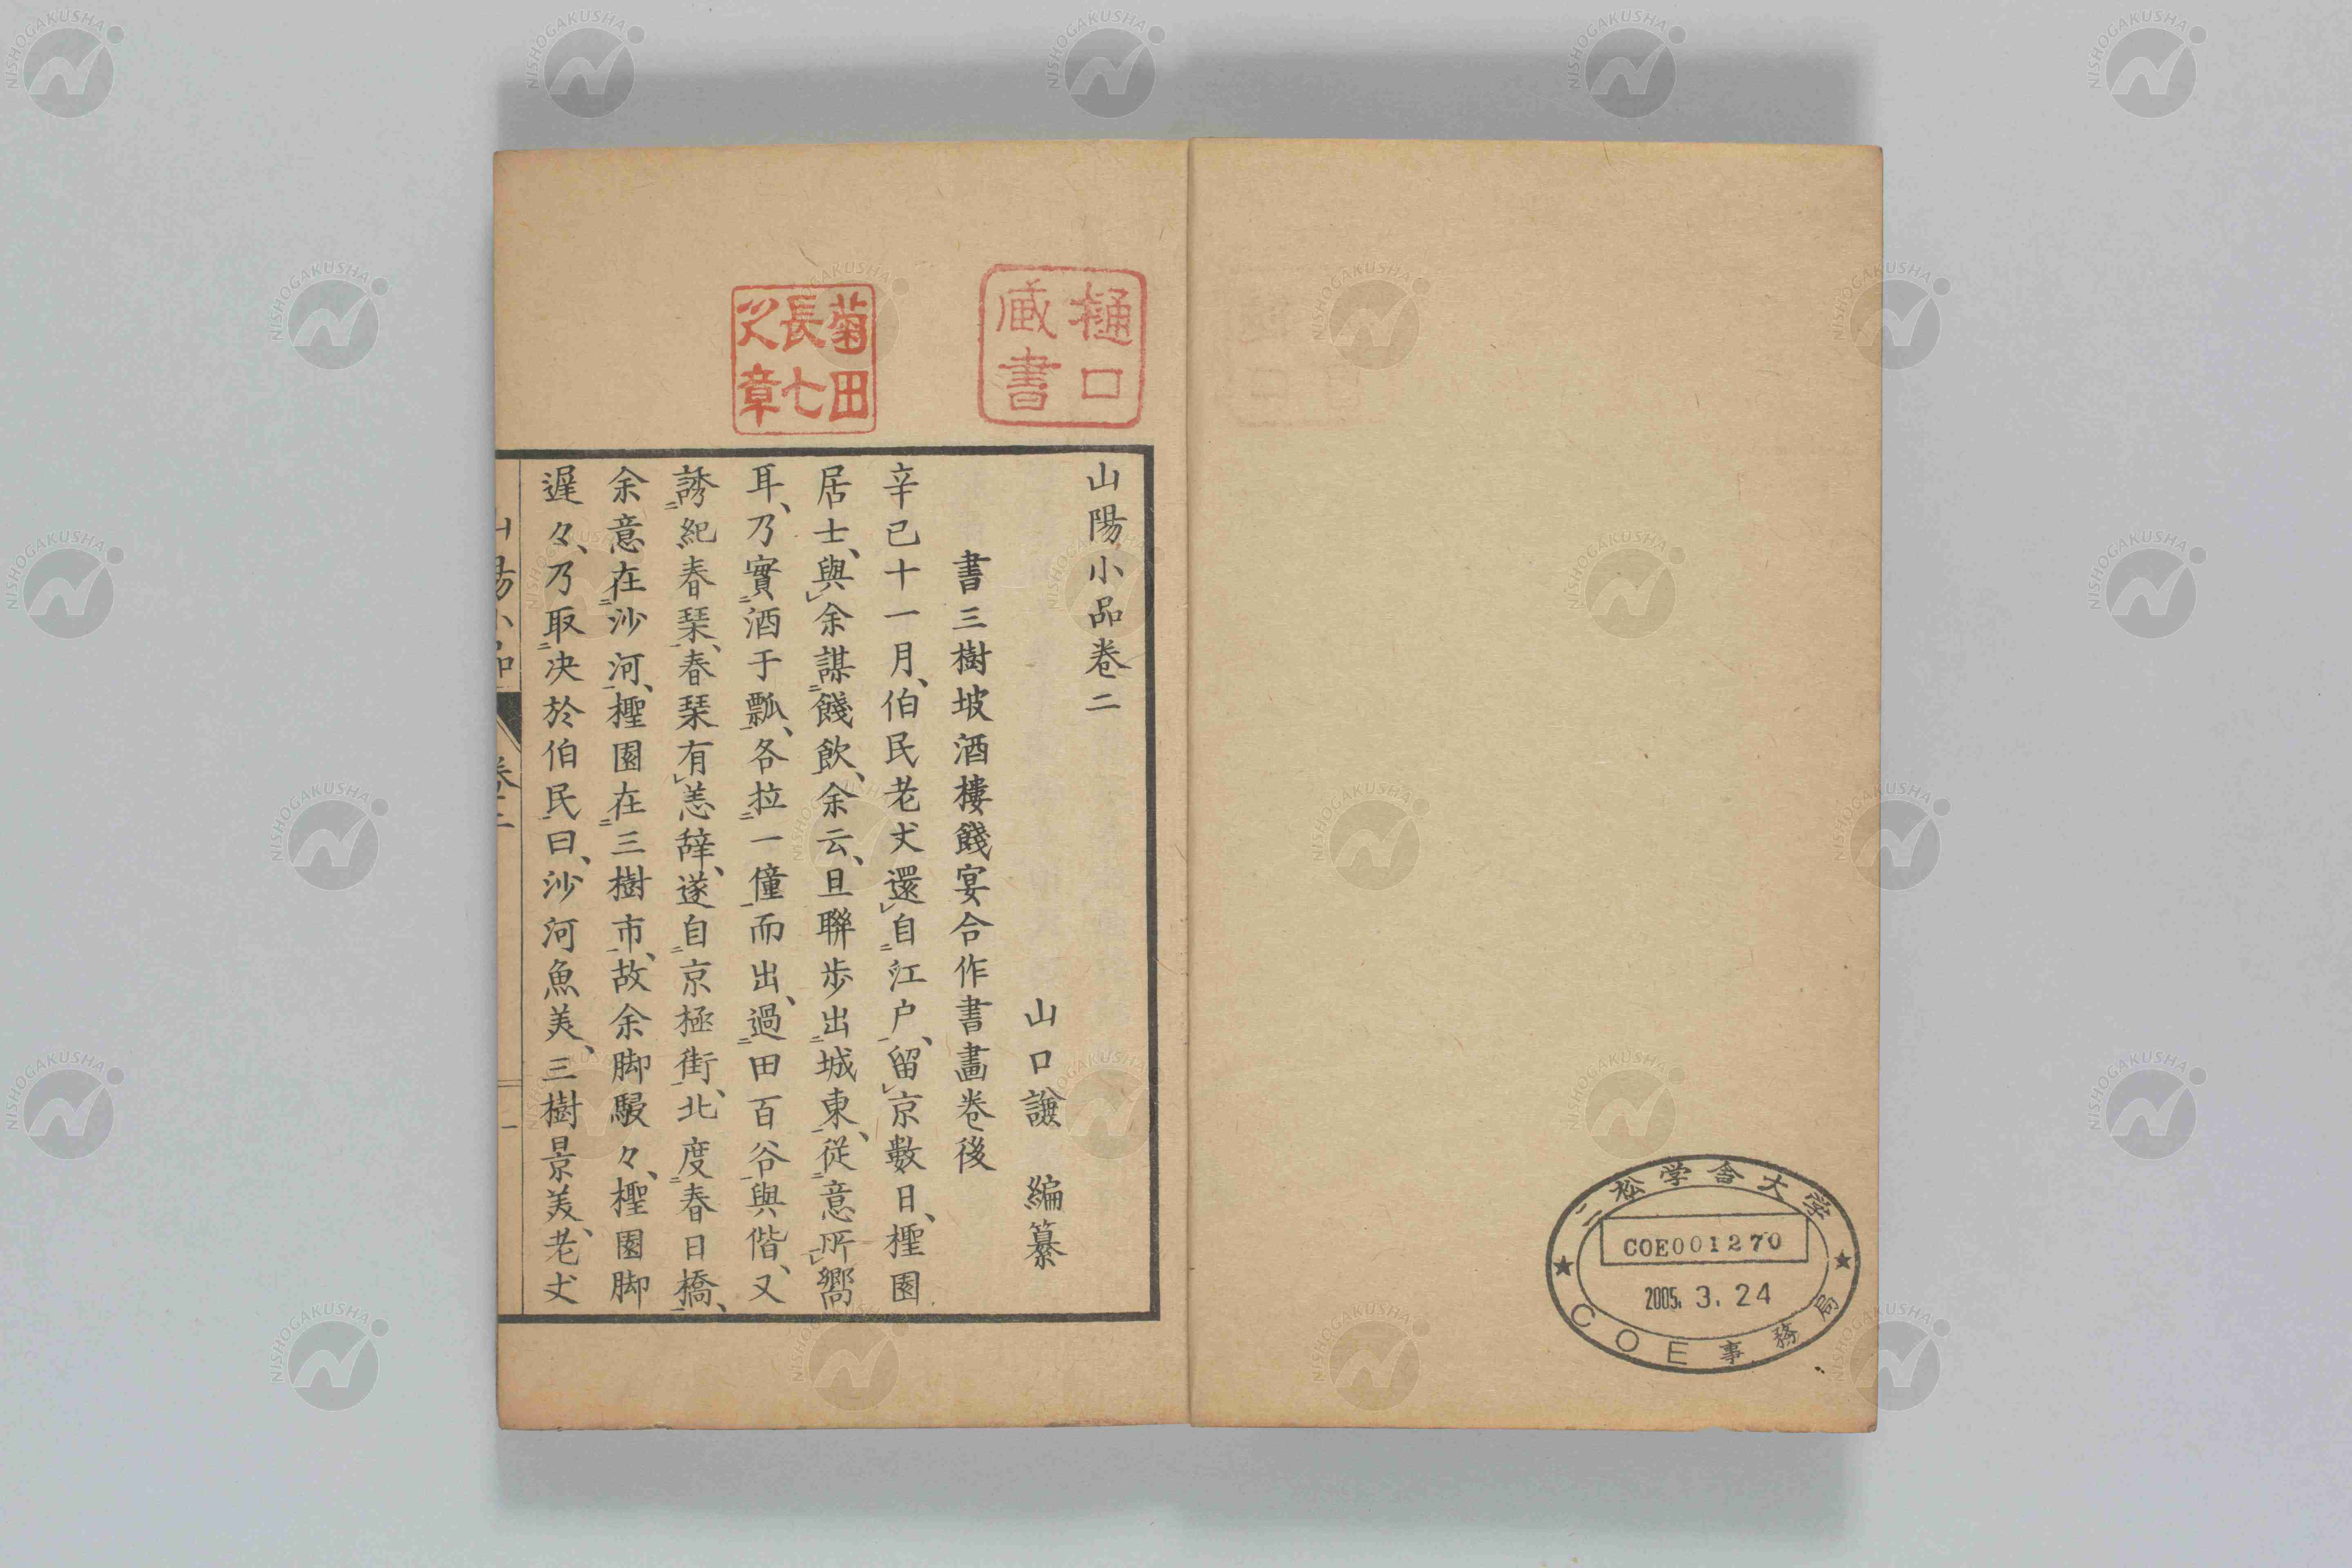 二松学舎大学
COE001270
2005. 3. 24
COE事務局
樋口
蔵書
菊田
長七
之章
山陽小品卷二
山口 編纂
書三樹坡酒樓餞宴合作書畫卷後
辛巳十一月、伯民老丈還自江戸、留京數日、檉園
居士、與余謀餞飲、余云、且聯歩出城東、従意所嚮
耳、乃實酒于瓢、各拉一僮而出、過田百谷與偕、又
誘紀春琹、春琹有恙辞、遂自京極街、北度春日橋、
余意在沙河、檉園在三樹市、故余脚駸々、檉園脚
遅々、乃取决於伯民、曰、沙河魚美、三樹景美、老丈
卷二
一
NISHOGAKUSHA